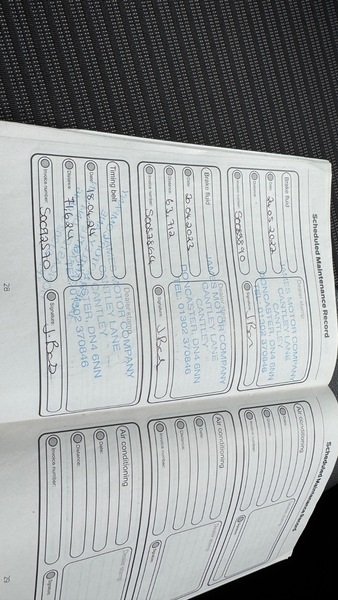 Scheduled Maintenance Record
Brake fluid
Date: 24.05.2022
Distance:
Invoice number:
Dealer stamp
MOTOR COMPANY
CANTLEY LANE
CANTLEY
DONCASTER DN4 6NN
TEL: 01302 370846
Signature:
Brake fluid
Date: 20.04.2023
Distance: 63,712
Invoice number:
S MOTOR COMPANY
CANTLEY LANE
CANTLEY
DONCASTER DN4 6NN
TEL: 01302 370846
Signature:
Timing belt
Date: 18.04.24
Distance: 71,624
Invoice number: S0092070
Dealer stamp
MOTOR COMPANY
CANTLEY LANE
CANTLEY
DN4 6NN
01302 370846
Signature:
28
Scheduled Maintenance Record
Air conditioning
Date:
Distance:
Invoice number:
Dealer stamp
Signature:
Air conditioning
Date:
Distance:
Invoice number:
Dealer stamp
Signature:
Air conditioning
Date:
Distance:
Invoice number:
Dealer stamp
Signature:
29